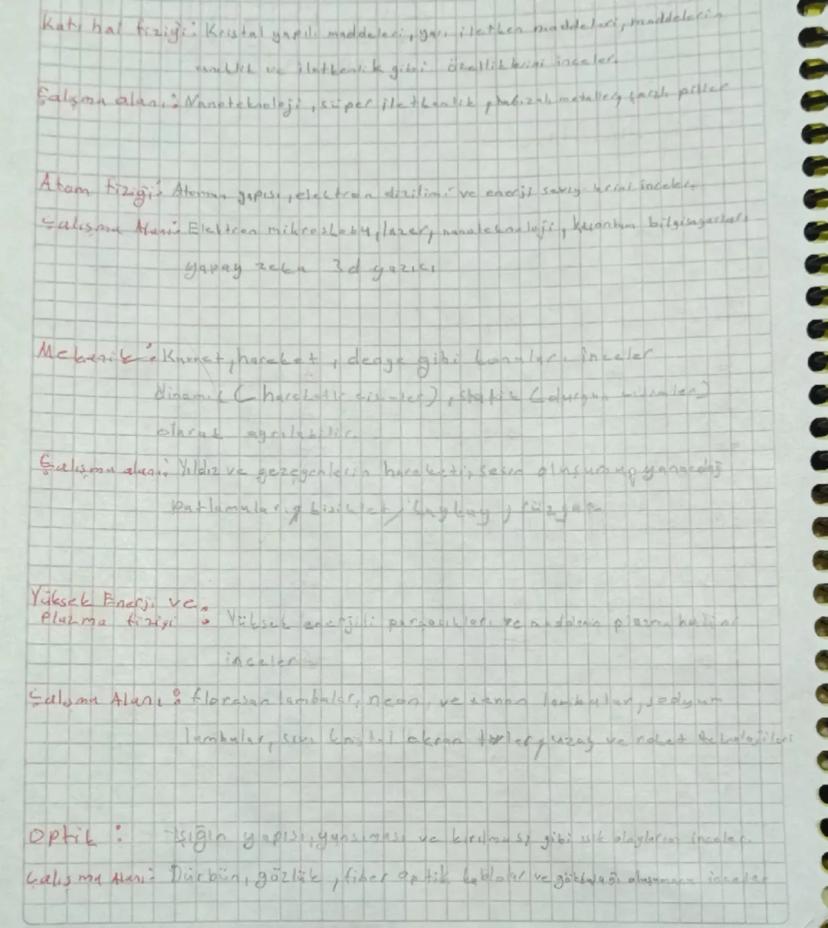 Katı hal fiziği: Kristal yapılı maddeleri, yarı iletken maddeleri, maddelerin
ve iletkenlik gibi özelliklerini inceler.
Çalışma alanı: Nanoteknoloji, süper iletkenlik, piller
Atom fiziği: Atomun yapısı, elektron dizilimi ve enerji inceler
Çalışma Alanı: Elektron mikroskobu, lazer, nanoteknoloji, kuantum bilgisayarları
yapay zeka 3d yazıcı
Mekanik: Kuvvet, hareket, denge gibi konuları inceler
dinamik (hareketli cisimler), statik (durgun cisimler)
olarak ayrılabilir.
Çalışma alanı: Yıldız ve gezegenlerin hareketi, sesin oluşumu, yanardağ
patlamaları, bisiklet, kaykay, rüzgar
Yüksek Enerji ve
Plazma fiziği: Yüksek enerjili parçacıkları ve maddenin plazma halini
inceler
Çalışma Alanı: florasan lambalar, neon, ve lambaları, sodyum
lambalar, sıvı kristal ekran uzay ve roket teknolojileri
Optik: Işığın yapısı, yansıması ve kırılması gibi ışık olaylarını inceler
Çalışma Alanı: Dürbün, gözlük, fiber optik kablolar ve gökkuşağı oluşumunu inceler